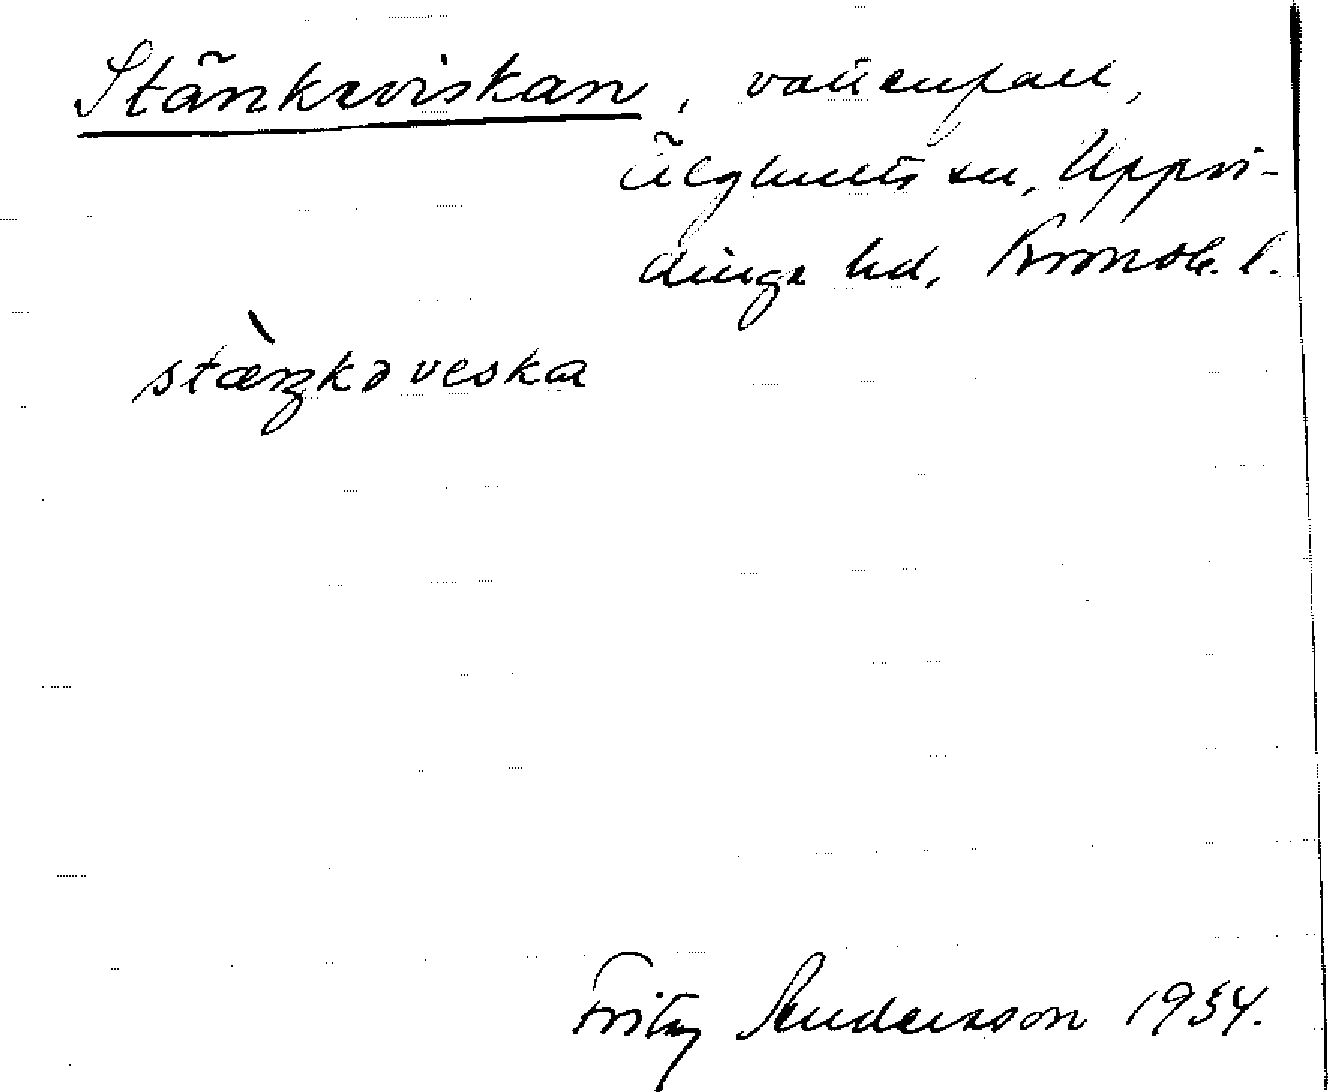 Stänkeviskan, vattenfall,
Älghults sn, Uppvi-
dinge hd, Kronob. l.
stæ̀ŋkəveska
Fritz Sandersson 1934.